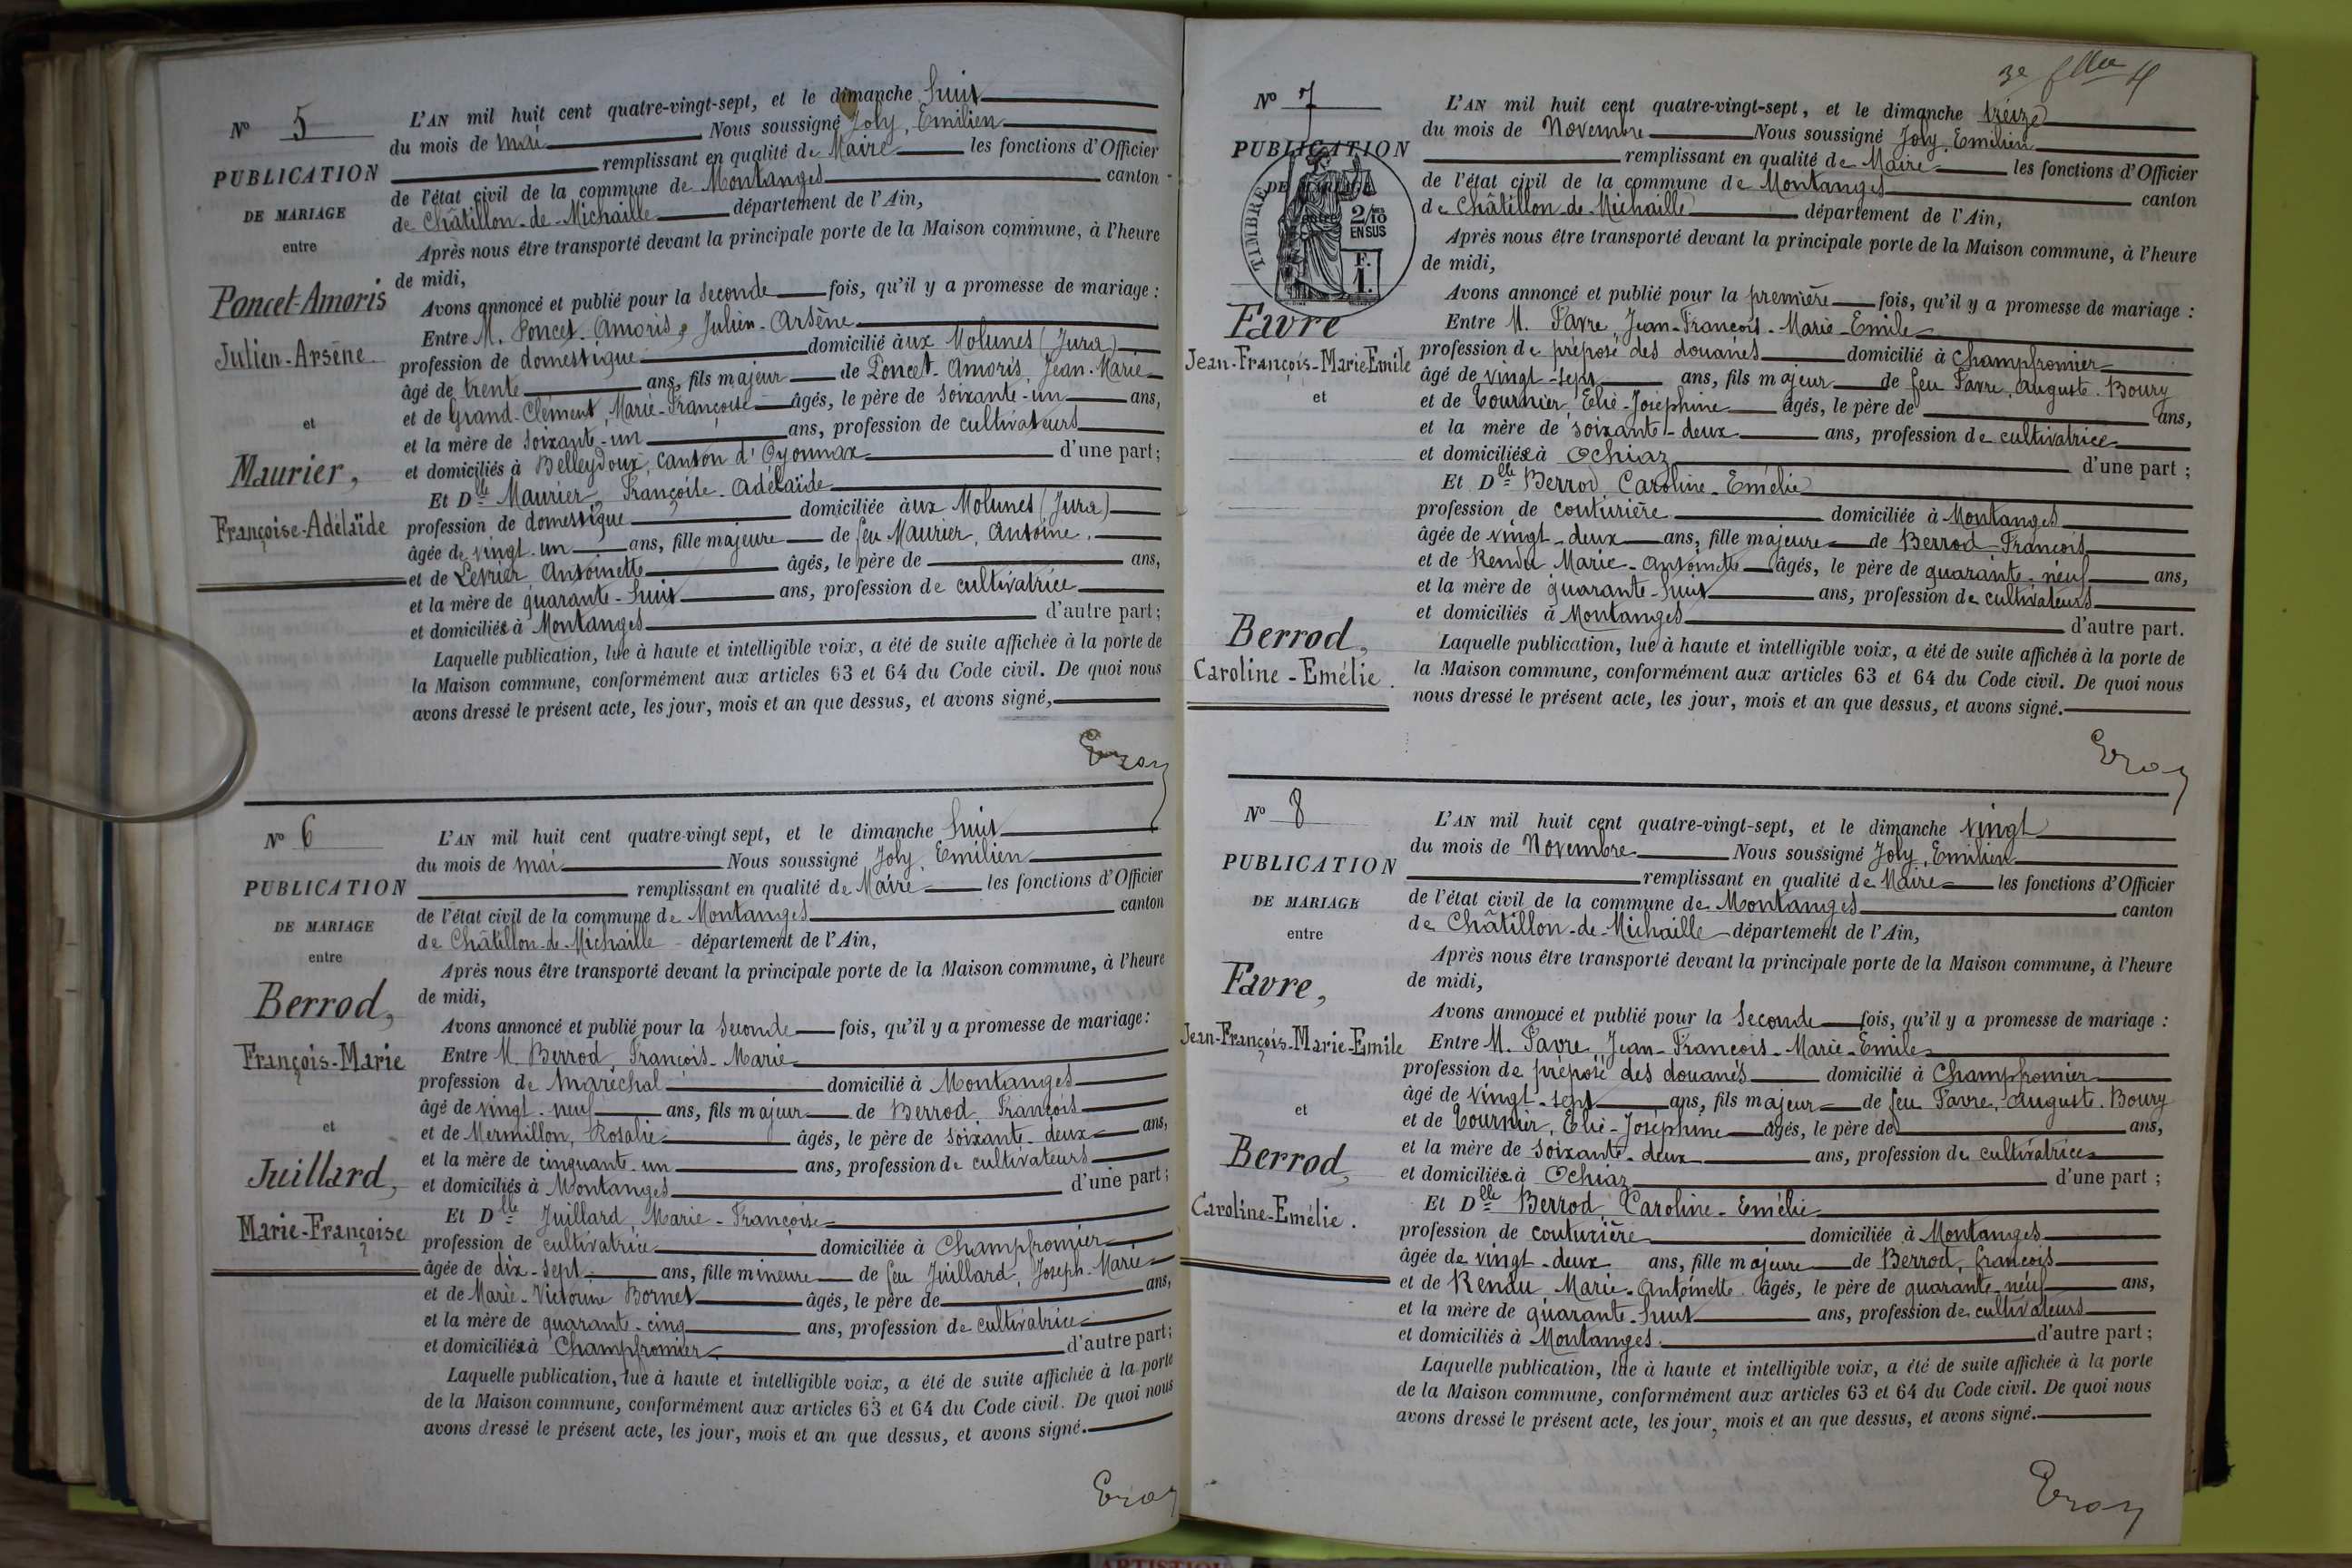 N° 5
PUBLICATION
DE MARIAGE
entre
Poncet-Amoris
Julien-Arsène
et
Maurier,
Françoise-Adélaïde
L'AN mil huit cent quatre-vingt-sept, et le dimanche huit
du mois de mai Nous soussigné Joly, Emilien
remplissant en qualité de Maire les fonctions d'Officier
de l'état civil de la commune de Montanges canton
de Châtillon-de-Michaille département de l'Ain,
Après nous être transporté devant la principale porte de la Maison commune, à l'heure
de midi,
Avons annoncé et publié pour la seconde fois, qu'il y a promesse de mariage :
Entre M. Poncet-Amoris, Julien-Arsène
profession de domestique domicilié àux Molunes (Jura)
âgé de trente ans, fils majeur de Poncet-Amoris, Jean-Marie
et de Grand-Clément, Marie-Françoise âgés, le père de soixante-un ans,
et la mère de soixante-un ans, profession de cultivateurs
et domiciliés à Belleydoux, canton d'Oyonnax d'une part ;
Et Dlle Maurier, Françoise-Adélaïde
profession de domestique domiciliée àux Molunes (Jura)
âgée de vingt-un ans, fille majeure de feu Maurier, Antoine,
et de Levrier Antoinette âgés, le père de ans,
et la mère de quarante-huit ans, profession de cultivatrice
et domiciliés à Montanges d'autre part ;
Laquelle publication, lue à haute et intelligible voix, a été de suite affichée à la porte de
la Maison commune, conformément aux articles 63 et 64 du Code civil. De quoi nous
avons dressé le présent acte, les jour, mois et an que dessus, et avons signé,
N° 6
PUBLICATION
DE MARIAGE
entre
Berrod,
François-Marie
et
Juillard,
Marie-Françoise
L'AN mil huit cent quatre-vingt sept, et le dimanche huit
du mois de mai Nous soussigné Joly, Emilien
remplissant en qualité de Maire les fonctions d'Officier
de l'état civil de la commune de Montanges canton
de Châtillon-de-Michaille département de l'Ain,
Après nous être transporté devant la principale porte de la Maison commune, à l'heure
de midi,
Avons annoncé et publié pour la seconde fois, qu'il y a promesse de mariage :
Entre M. Berrod François-Marie
profession de maréchal domicilié à Montanges
âgé de vingt-neuf ans, fils majeur de Berrod François
et de Mermillon, Rosalie âgés, le père de soixante-deux ans,
et la mère de cinquante-un ans, profession de cultivateurs
et domiciliés à Montanges d'une part ;
Et Dlle Juillard, Marie-Françoise
profession de cultivatrice domiciliée à Champfromier
âgée de dix-sept ans, fille mineure de feu Juillard, Joseph-Marie
et de Marie-Victorine Bornet âgés, le père de ans,
et la mère de quarante-cinq ans, profession de cultivatrice
et domiciliés à Champfromier d'autre part ;
Laquelle publication, lue à haute et intelligible voix, a été de suite affichée à la porte
de la Maison commune, conformément aux articles 63 et 64 du Code civil. De quoi nous
avons dressé le présent acte, les jour, mois et an que dessus, et avons signé.
N° 7
PUBLICATION
DE MARIAGE
entre
TIMBRE
2/10
EN SUS
F.
1.
Favre
Jean-François-Marie-Emile
et
Berrod,
Caroline-Emélie.
L'AN mil huit cent quatre-vingt-sept, et le dimanche treize
du mois de Novembre Nous soussigné Joly, Emilien
remplissant en qualité de Maire les fonctions d'Officier
de l'état civil de la commune de Montanges canton
de Châtillon-de-Michaille département de l'Ain,
Après nous être transporté devant la principale porte de la Maison commune, à l'heure
de midi,
Avons annoncé et publié pour la première fois, qu'il y a promesse de mariage :
Entre M. Favre, Jean-François-Marie-Emile
profession de préposé des douanes domicilié à Champfromier
âgé de vingt-sept ans, fils majeur de feu Favre, Auguste-Boury
et de Tournier, Elie-Joséphine âgés, le père de ans,
et la mère de soixante-deux ans, profession de cultivatrice
et domiciliés à Ochiaz d'une part ;
Et Dlle Berrod Caroline-Emélie
profession de couturière domiciliée à Montanges
âgée de vingt-deux ans, fille majeure de Berrod François
et de Rendu Marie-Antoinette âgés, le père de quarante-neuf ans,
et la mère de quarante-huit ans, profession de cultivateurs
et domiciliés à Montanges d'autre part.
Laquelle publication, lue à haute et intelligible voix, a été de suite affichée à la porte de
la Maison commune, conformément aux articles 63 et 64 du Code civil. De quoi nous
nous dressé le présent acte, les jour, mois et an que dessus, et avons signé.
N° 8
PUBLICATION
DE MARIAGE
entre
Favre,
Jean-François-Marie-Emile
et
Berrod,
Caroline-Emélie.
L'AN mil huit cent quatre-vingt-sept, et le dimanche vingt
du mois de Novembre Nous soussigné Joly, Emilien
remplissant en qualité de Maire les fonctions d'Officier
de l'état civil de la commune de Montanges canton
de Châtillon-de-Michaille département de l'Ain,
Après nous être transporté devant la principale porte de la Maison commune, à l'heure
de midi,
Avons annoncé et publié pour la seconde fois, qu'il y a promesse de mariage :
Entre M. Favre, Jean-François-Marie-Emile
profession de préposé des douanes domicilié à Champfromier
âgé de vingt-sept ans, fils majeur de feu Favre, Auguste-Boury
et de Tournier, Elie-Joséphine âgés, le père de ans,
et la mère de soixante-deux ans, profession de cultivatrice
et domiciliés à Ochiaz d'une part ;
Et Dlle Berrod, Caroline-Emélie
profession de couturière domiciliée à Montanges
âgée de vingt-deux ans, fille majeure de Berrod, François
et de Rendu Marie-Antoinette âgés, le père de quarante-neuf ans,
et la mère de quarante-huit ans, profession de cultivateurs
et domiciliés à Montanges. d'autre part ;
Laquelle publication, lue à haute et intelligible voix, a été de suite affichée à la porte
de la Maison commune, conformément aux articles 63 et 64 du Code civil. De quoi nous
avons dressé le présent acte, les jour, mois et an que dessus, et avons signé.